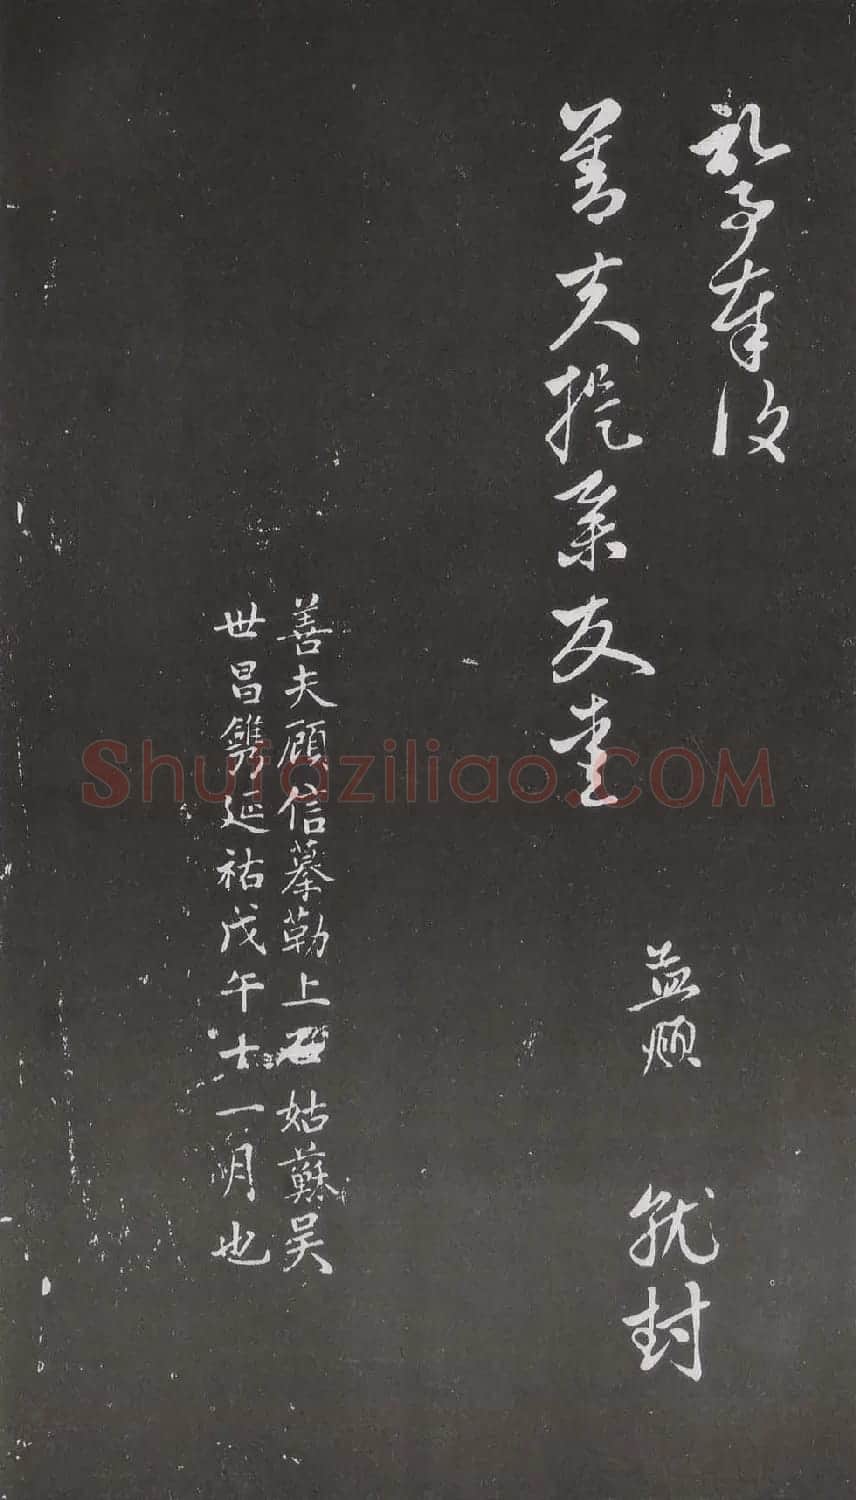 記事奉復
善夫提舉友愛
孟頫 就封
善夫顧信摹勒上石姑蘇吳
世昌鐫延祐戊午十一月也
Shufaziliao.COM